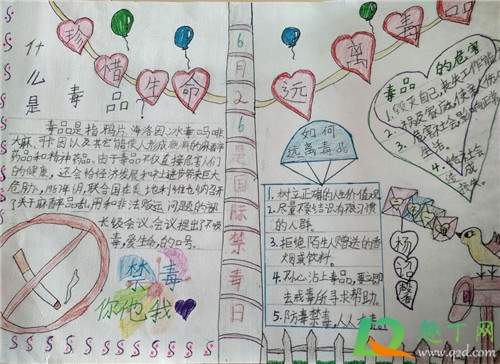 珍惜生命
远离毒品
什么是毒品?
毒品是指鸦片、海洛因、冰毒、吗啡
大麻、可卡因以及其它能使人形成瘾癖的麻醉
药品和精神药品,由于毒品不仅直接危害人们
的健康,还会给经济发展和社会进步带来巨大
了关于麻醉药品滥用和非法贩运问题的部
长级会议。会议提出了"不吸
毒,爱生命"的口号。
禁毒
你他我
6月26是国际禁毒日
如何
远离毒品
1.树立正确的人生价值观
2.尽量不要结识有恶习惯
的人群。
3.拒绝陌生人赠送的香
烟或饮料。
4.不小心沾上毒品,要立即
去戒毒所寻求帮助。
5.防毒禁毒,人人有责
毒品的危害
1.毁灭自己
3.危害社会
生活。
趣丁网
www.q2d.com